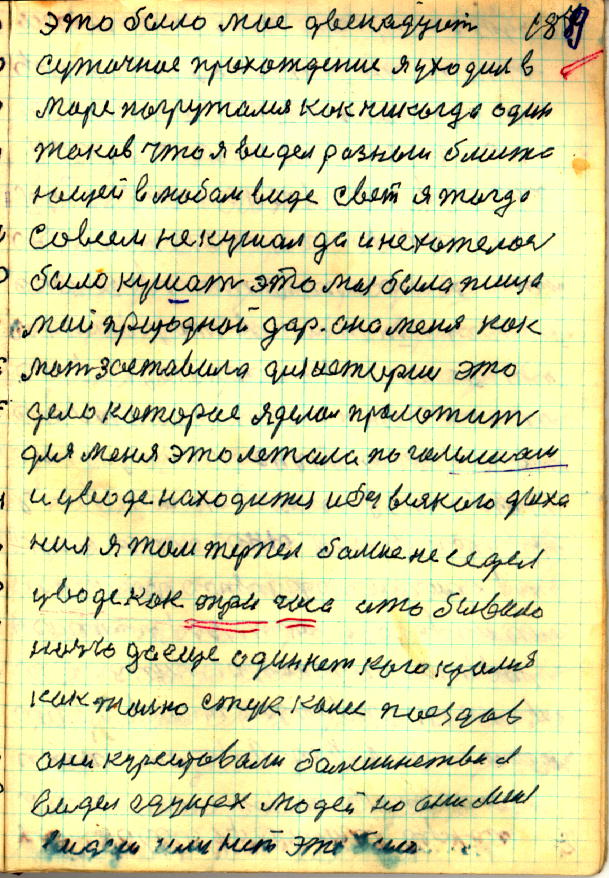 это было мое двенадцат 189
суточное прохождение я уходил в
море погружался как никогда один
таков что я видел разный ближа
в любом виде свет я тогда
совсем не кушал да и нехотелос
было кушат это моя была пища
мой природной дар. она меня как
мат заставила для истории это
дело которое я делал проложит
для меня это летала по
и уводе находится и без всякого дыха
ния я там терпел болше не седел
уводе как три часа ато бывало
ночю да еще один нет кого кроме
как толко стук колес поездов
они курсировали болшинство я
видел едущех людей но они меня
видели или нет это было